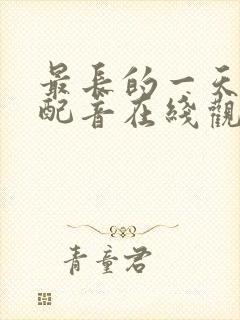 最長的一天
配音在綫觀
青童君